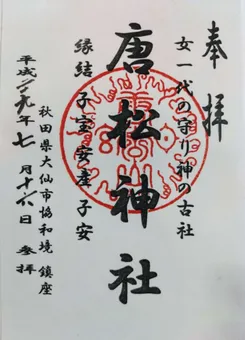 奉拝
女一代の守り神の古社
唐松神社
縁結 子宝安産 子安
秋田県大仙市協和境 鎮座
平成二九年七月十六日 参拝